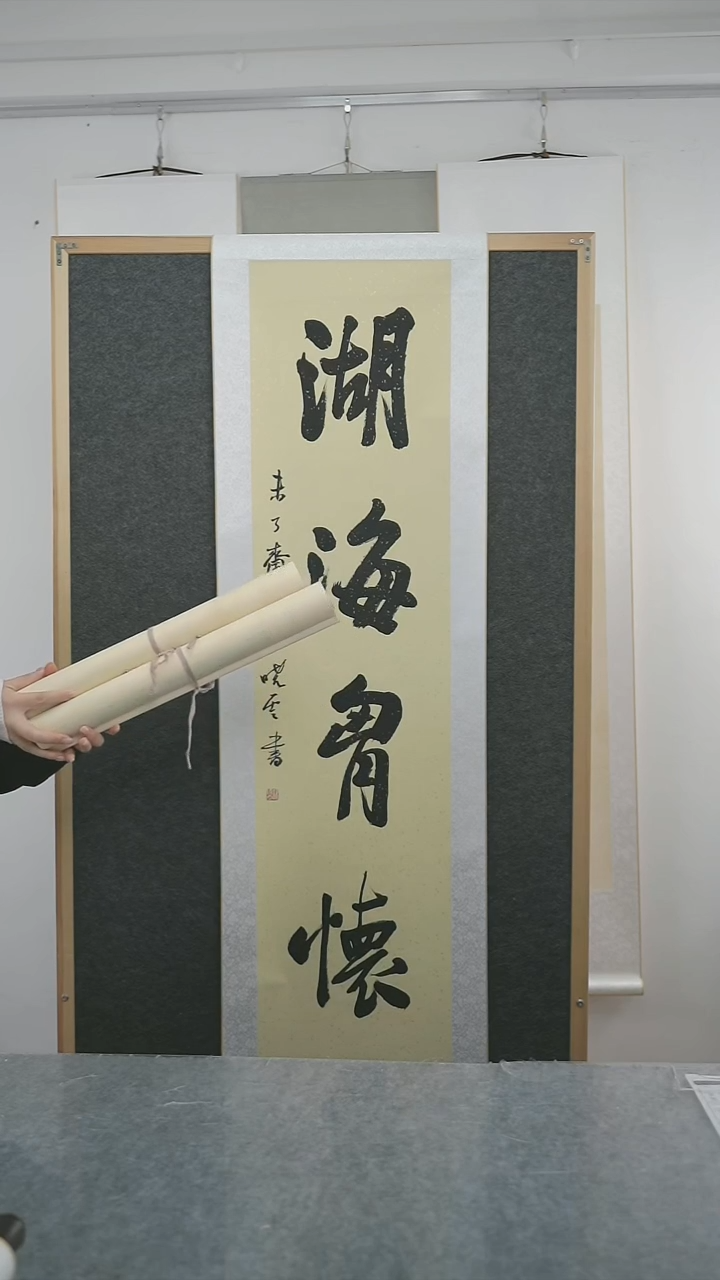 湖海胷懷
未了齋
曉雲書